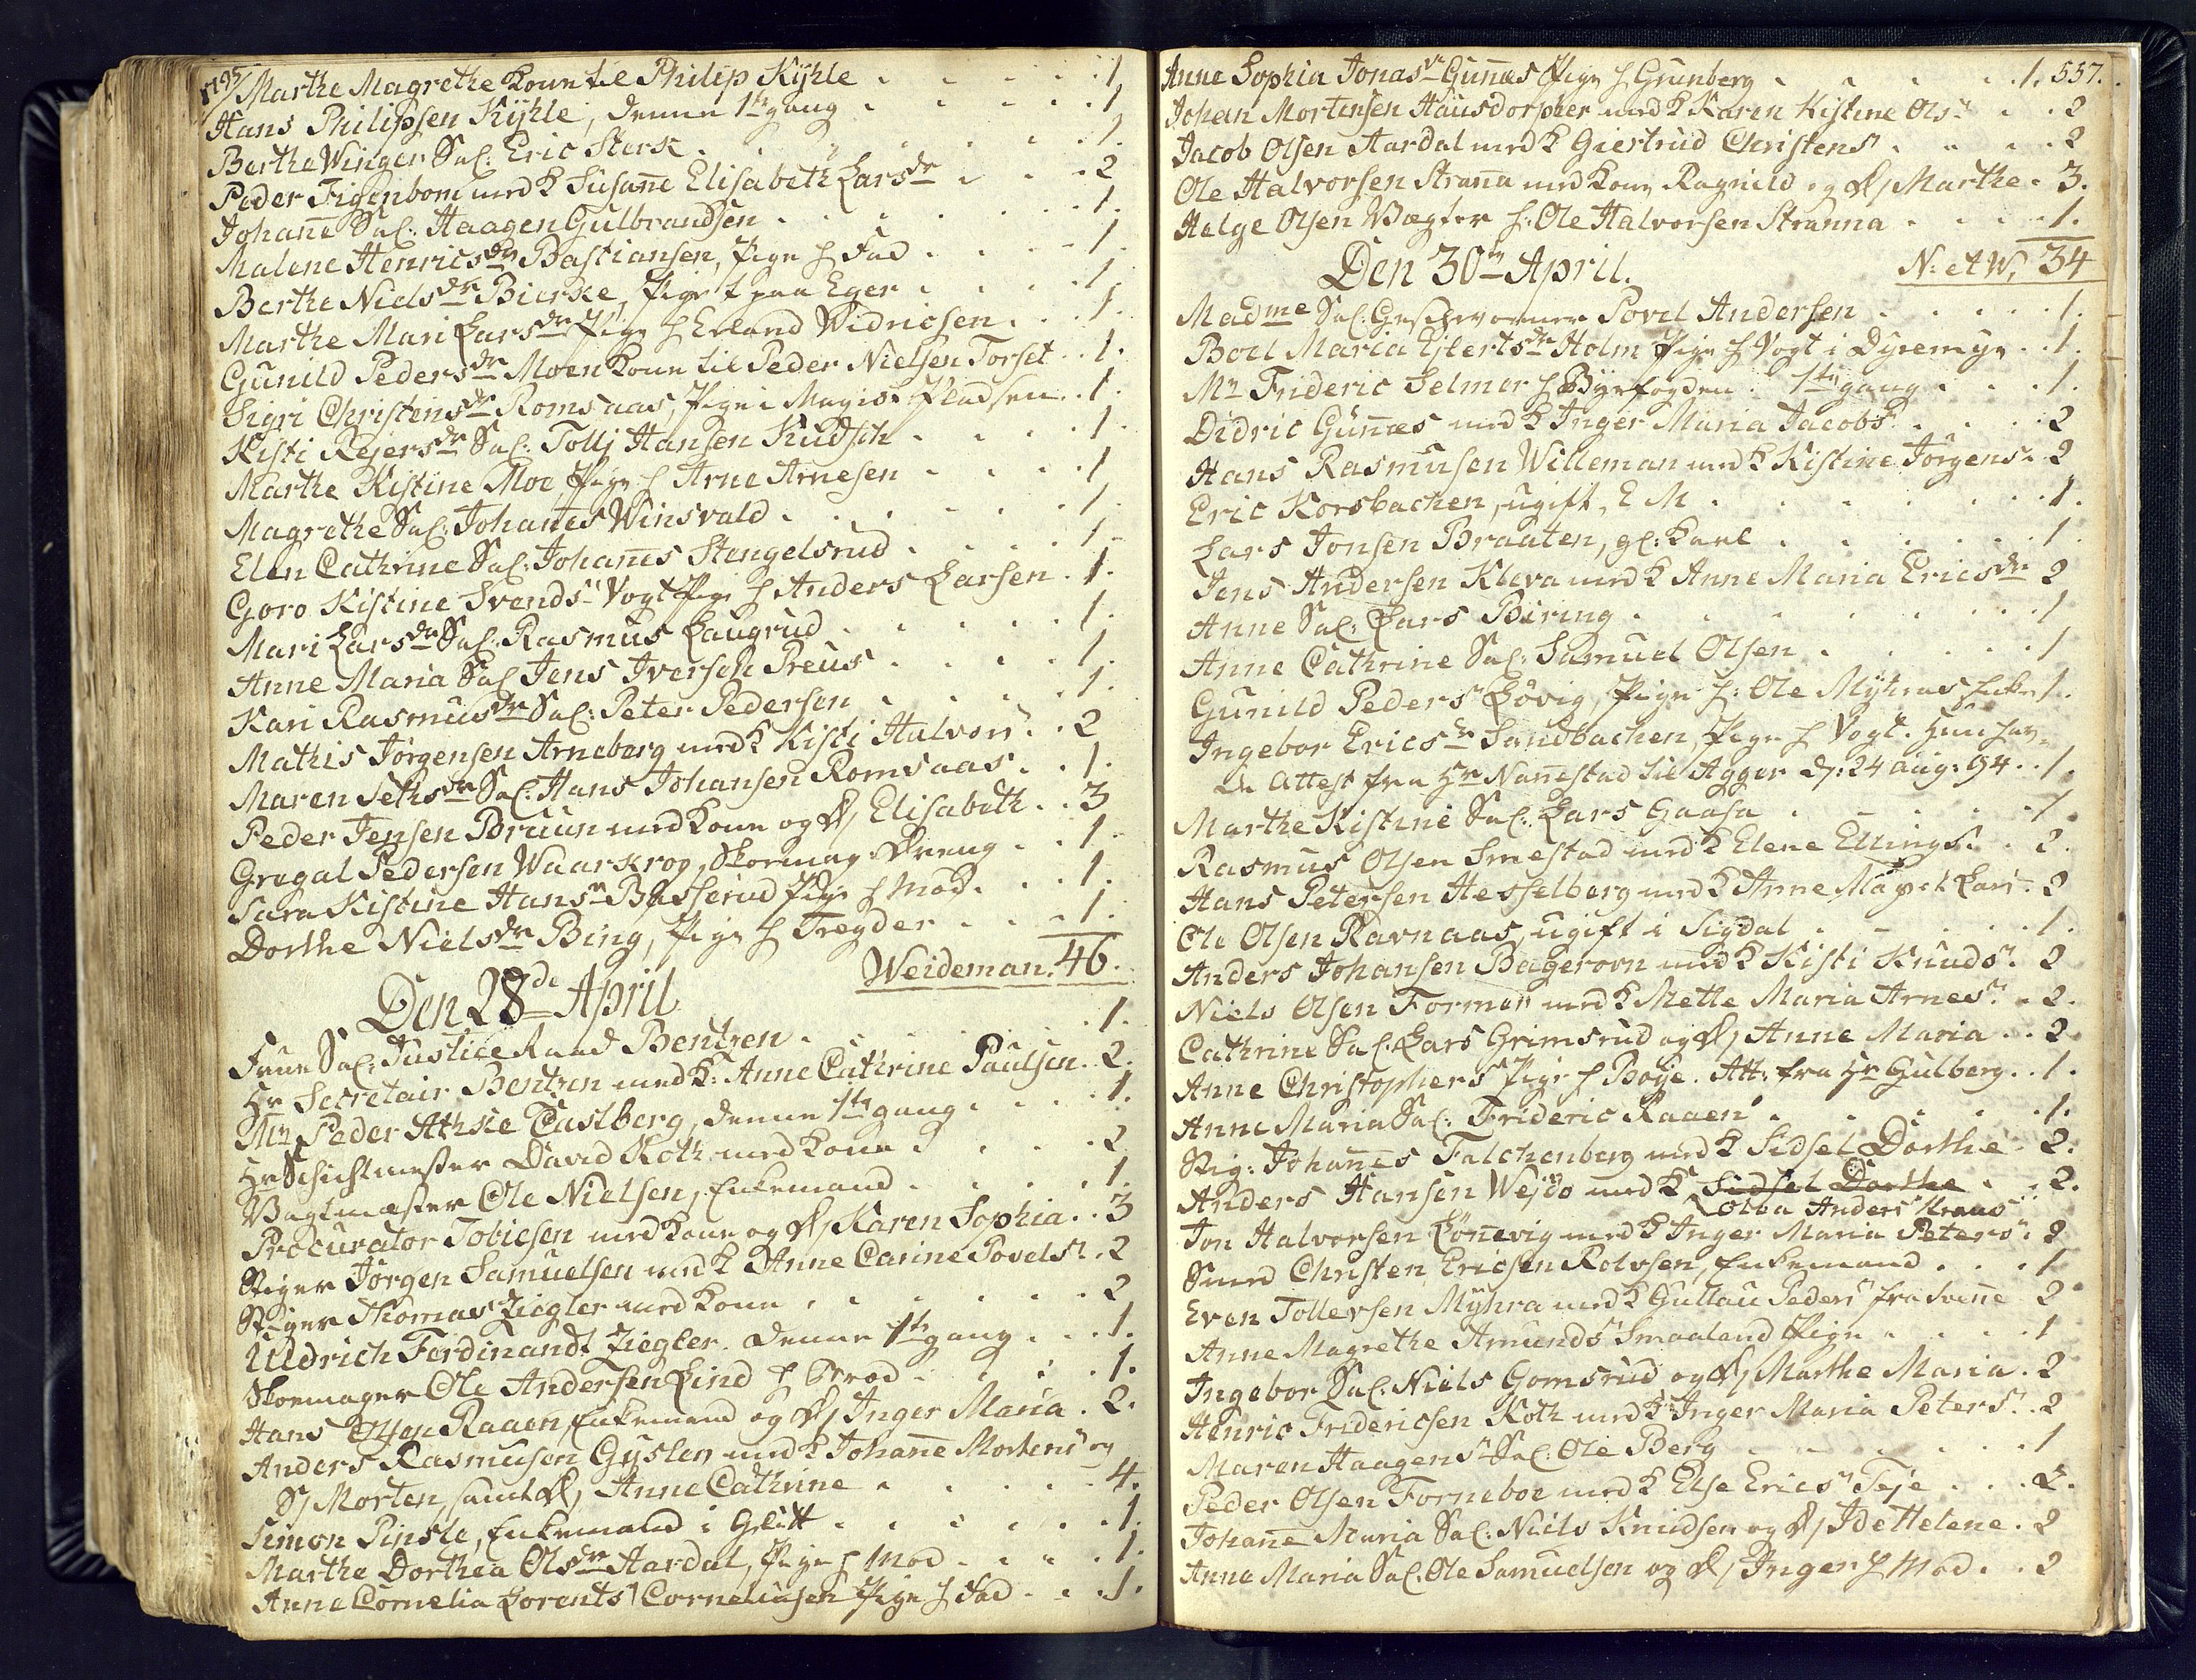 1795/ Marthe Magrethe Kone til Philip Kyhle . . . . . 1.
Hans Philipsen Kyhle, denne 1ste gang . . . . . 1
Berthe Winger Sal: Eric Stersk . . . . . 1.
Peder Figenbom med K Susanne Elisabeth Larsdr . . . 2
Johanne Sal: Haagen Gulbrandsen . . . . . 1.
Malene Henricsdr Bastiansen, Pige h Fad . . . . 1.
Berthe Nielsdr Bierke, Pige t paa Eger . . . . 1
Marthe Mari Larsdr Pige h Erland Didricsen . . . 1.
Gunild Pedersdr Moen Kone til Peder Nielsen Torset . . 1.
Sigri Christensdr Romsaas, Pige i Magis: Pladsen . . 1.
Kisti Rejersdr Sal: Tollj Hansen Kudsk . . . . 1.
Marthe Kistine Moe Pige h Arne Arnesen . . . . 1
Magrethe Sal: Johannes Winsvald . . . . . 1.
Elen Cathrine Sal: Johannes Stengelsrud . . . . 1.
Goro Kistine Svends: Vogt Pige h Anders Larsen . 1.
Mari Larsdr Sal: Rasmus Laugrud . . . . . 1.
Anne Maria Sal Jens Iversen Preus . . . . 1.
Kari Rasmusdr Sal: Peter Pedersen . . . . . 1.
Mathis Jørgensen Arneberg med K Kisti Halvors: . . 2
Maren Sethsdr Sal: Hans Johansen Romsaas . . 1.
Peder Jensen Bruun med Kone og D/ Elisabeth . . 3
Gregal Pedersen Waarkrog, Skomag: Dreng . . 1.
Sara Kistine Hansdr Basserud Pige h Mod . . . 1.
Dorthe Nielsdr Bing, Pige h Tregder . . . . 1.
Weideman. 46.
Den 28de April
Frue Sal: Justice Raad Bentzen . . . . . 1.
Hr Secretair Bentzen med K: Anne Cathrine Paulsen . 2.
Mr Peder Athke Castberg, denne 1ste gang . . . . 1.
Hr Schichtmester David Koth med Kone . . . . 2
Vagtmæster Ole Nielsen, Enkemand . . . . 1.
Procurator Tobiesen med Kone og D/ Karen Sophia . . 3
Stiger Jørgen Samuelsen med K Anne Carine Povels: . 2
Stiger Thomas Ziegler med Kone . . . . . 2
Uldrich Ferdinandt Ziegler. denne 1ste gang . . . 1.
Skomager Ole Andersen Lind h Brod . . . . 1.
Hans Olsen Raaen, Enkemand og D/ Inger Maria . 2.
Anders Rasmusen Gysler med K Johanne Mortens: og
S/ Morten, samt D/ Anne Cathrine . . . . 4.
Simon Pinsle, Enkemand i Glitt . . . . . 1.
Marthe Dorthea Olsdr Aardal, Pige h Mod . . . . 1.
Anne Cornelia Lorents: Corneliusen Pige h Fad . . . 1.
Anne Sophia Jonasdr Gunnæs Pige h Grunberg . . . . 1. 557.
Johan Mortensen Hausdorpher med K Karen Kistine Ols: . . 2
Jacob Olsen Aardal med K Giertrud Christens: . . . 2
Ole Halvorsen Stranna med Kone Ragnild og D/ Marthe . 3.
Helge Olsen Vægter h: Ole Halvorsen Stranna . . . . 1.
Den 30te April. N: et W, 34
Madme Sal: Geschworner Povel Andersen . . . . . 1.
Boel Maria Ejlertsdr Holm Pige h Vogt i Dyremyr . . 1.
Mr Frideric Selmer h Byefogden 1ste gang . . . 1.
Didric Gunnæs med K Inger Maria Jacobs: . . . . 2
Hans Rasmusen Willeman med K Kistine Jørgens: . 2
Eric Korsbachen, ugift, E M . . . . . . 1.
Lars Jonsen Braaten, gl: Karl . . . . . 1
Jens Andersen Kleva med K Anne Maria Ericsdr 2
Anne Sal: Lars Biring . . . . . . 1
Anne Cathrine Sal: Samuel Olsen . . . . . 1
Gunild Peders: Løvig, Pige h: Ole Myhras Enke 1.
Ingebor Ericsdr Sandbachen, Pige h Vogt. Hun hav-
de Attest fra Hr Nannestad til Agger d: 24 Aug: 94 . . 1.
Marthe Kistine Sal: Lars Gaasa . . . . . 1.
Rasmus Olsen Smestad med K Elene Ellings: . . 2.
Hans Petersen Hesselberg med K Anne Magret Lars: . 2
Ole Olsen Ravnaas, ugift i Sigdal . . . . . 1.
Anders Johansen Bagerovn med K Kisti Knuds: . 2
Niels Olsen Former med K Mette Maria Arnes: . 2.
Cathrine Sal: Lars Grimsrud og D/ Anne Maria . . 2
Anne Christophers: Pige h Boye. Att: fra Hr Gulberg . . 1.
Anne Maria Sal: Frideric Raaen . . . . . 1.
Stig: Johannes Falchenberg med K Sidsel Dorthe . 2.
Anders Hansen Wejdo med K Sidsel Dorthe . . 2.
Lobba Anders: Kraus
Jon Halvorsen Lønnevig med K Inger Maria Peters: 2
Smed Christen Ericsen Rolvsen, Enkemand . . . 1
Even Tollevsen Myhra med K Gullau Peders: fra Svenne 2
Anne Magrethe Amunds: Smaaland Pige . . . . 1
Ingebor Sal: Niels Gomsrud og D/ Marthe Maria . 2
Henric Fridericsen Koth med K Inger Maria Peters: . 2
Maren Haagens: Sal: Ole Berg . . . . . . 1
Peder Olsen Forneboe med K Else Erics: Teje . . . 2.
Johanne Maria Sal: Niels Knudsen og D/ Ide Helene . 2
Anne Maria Sal: Ole Samuelsen og D/ Inger h Mod . . 2